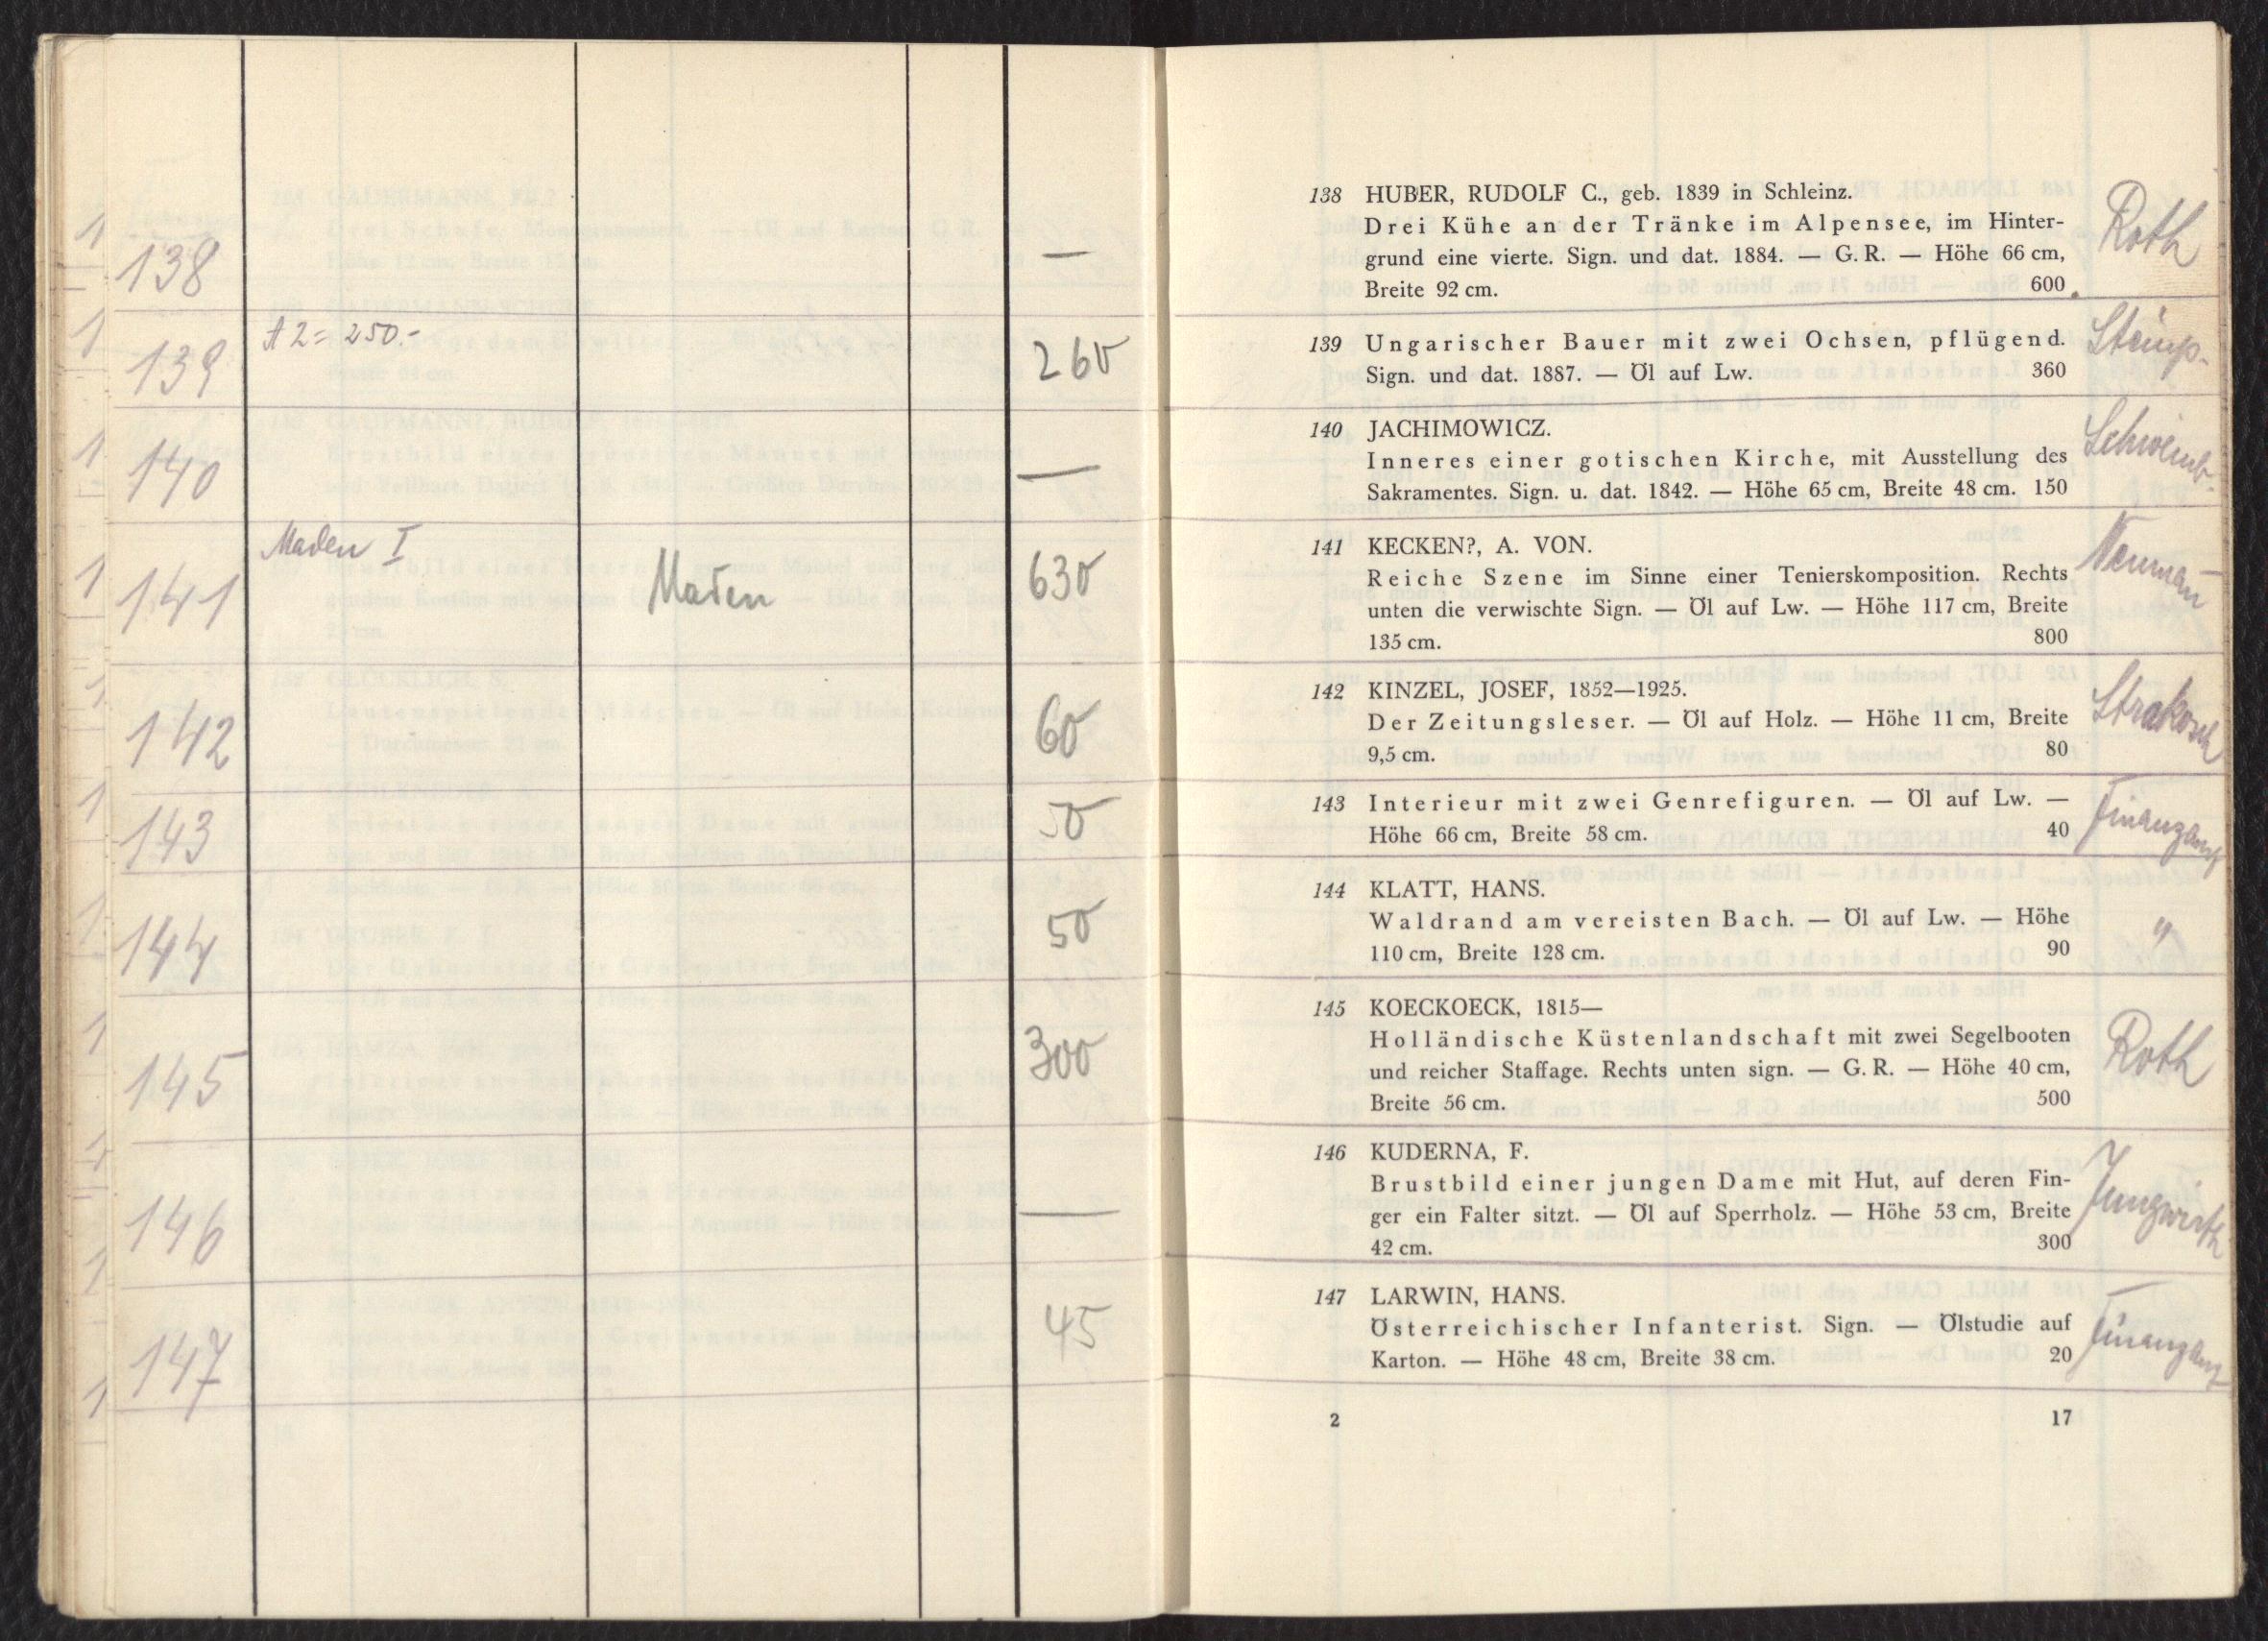 138
—
139
A 2 = 250.-
260
140
—
141
Maden I
Maden
630
142
60
143
50
144
50
145
300
146
—
147
45
138 HUBER, RUDOLF C., geb. 1839 in Schleinz.
Drei Kühe an der Tränke im Alpensee, im Hinter-
grund eine vierte. Sign. und dat. 1884. — G. R. — Höhe 66 cm,
Breite 92 cm. 600
Roth
139 Ungarischer Bauer mit zwei Ochsen, pflügend.
Sign. und dat. 1887. — Öl auf Lw. 360
140 JACHIMOWICZ.
Inneres einer gotischen Kirche, mit Ausstellung des
Sakramentes. Sign. u. dat. 1842. — Höhe 65 cm, Breite 48 cm. 150
Schweinb.
141 KECKEN?, A. VON.
Reiche Szene im Sinne einer Tenierskomposition. Rechts
unten die verwischte Sign. — Öl auf Lw. — Höhe 117 cm, Breite
135 cm. 800
Neumann
142 KINZEL, JOSEF, 1852—1925.
Der Zeitungsleser. — Öl auf Holz. — Höhe 11 cm, Breite
9,5 cm. 80
Strakosch
143 Interieur mit zwei Genrefiguren. — Öl auf Lw. —
Höhe 66 cm, Breite 58 cm. 40
Finanzamt
144 KLATT, HANS.
Waldrand am vereisten Bach. — Öl auf Lw. — Höhe
110 cm, Breite 128 cm. 90
"
145 KOECKOECK, 1815—
Holländische Küstenlandschaft mit zwei Segelbooten
und reicher Staffage. Rechts unten sign. — G. R. — Höhe 40 cm,
Breite 56 cm. 500
Roth
146 KUDERNA, F.
Brustbild einer jungen Dame mit Hut, auf deren Fin-
ger ein Falter sitzt. — Öl auf Sperrholz. — Höhe 53 cm, Breite
42 cm. 300
Jungwirth
147 LARWIN, HANS.
Österreichischer Infanterist. Sign. — Ölstudie auf
Karton. — Höhe 48 cm, Breite 38 cm. 20
Finanzamt
2 17